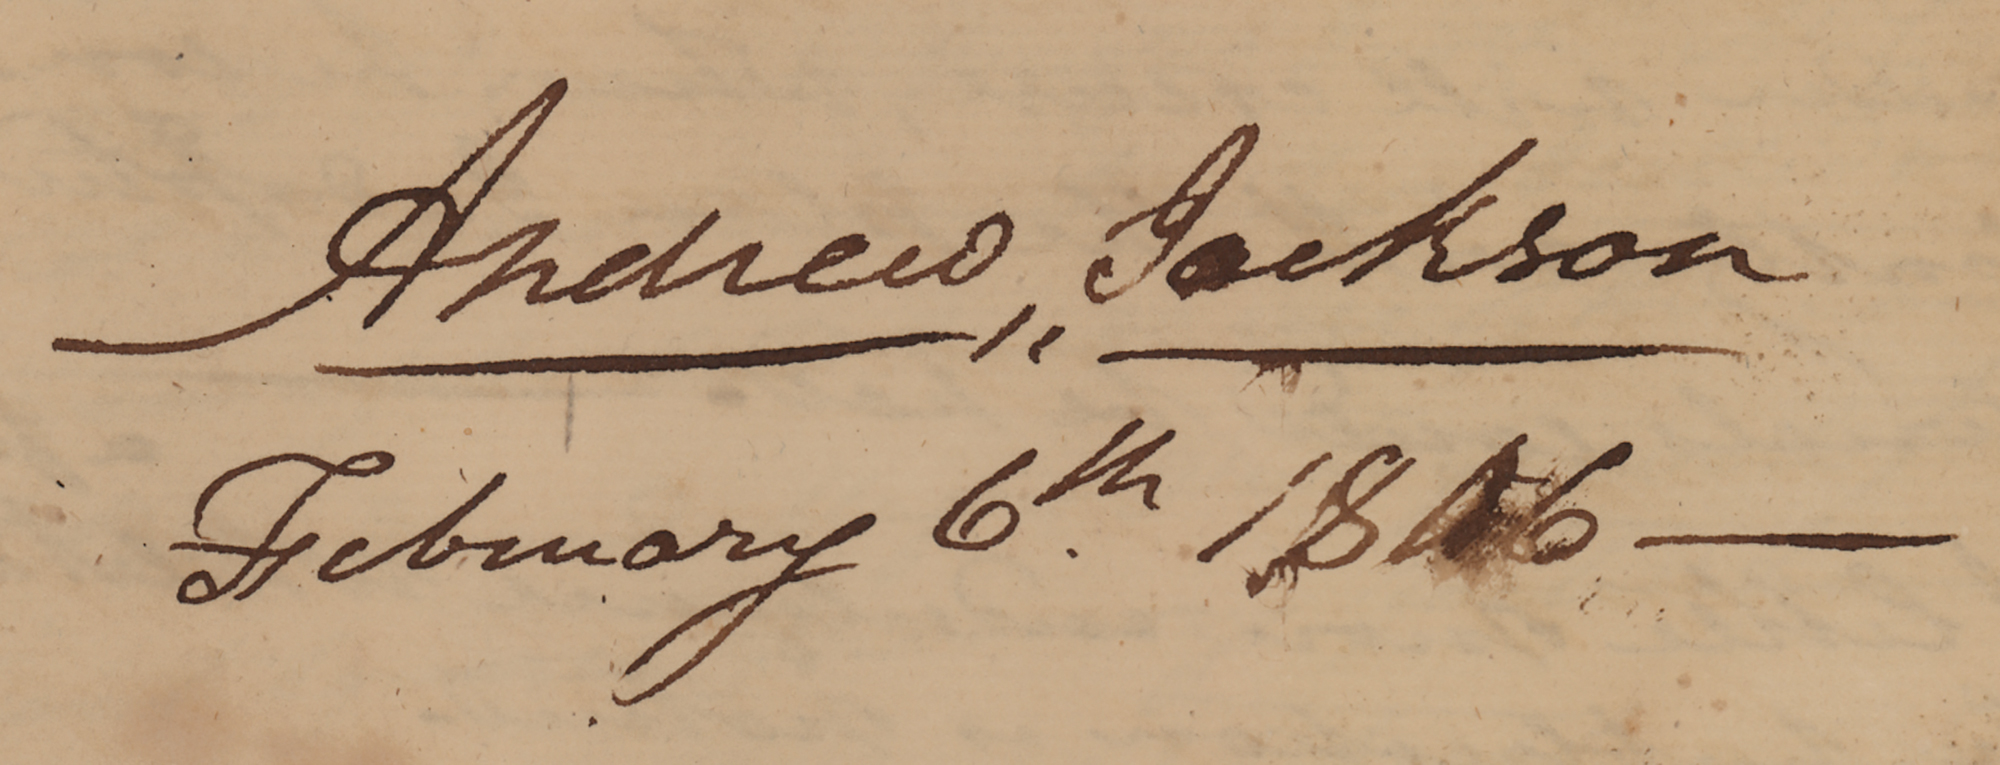 Andrew,, Jackson
February 6th. 1806—